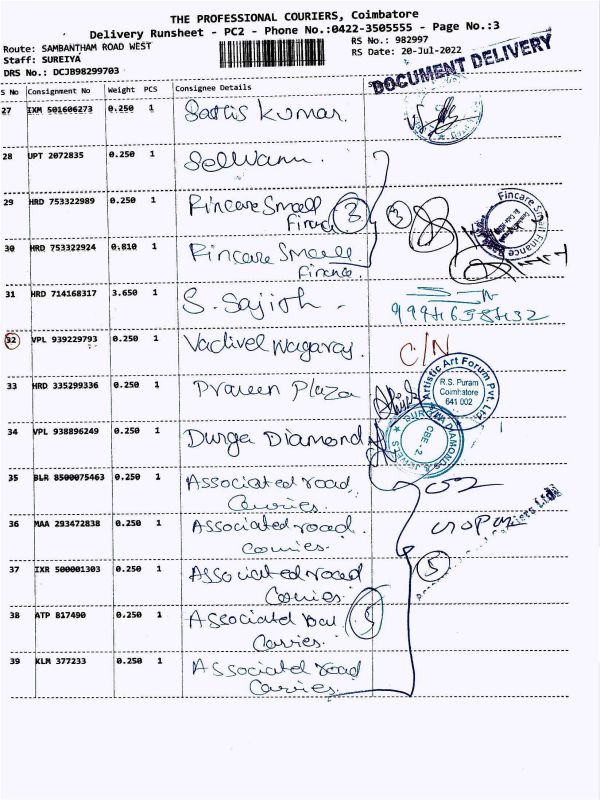 THE PROFESSIONAL COURIERS, Coimbatore
Delivery Runsheet - PC2 - Phone No.:0422-3505555 - Page No.:3
Route: SAMBANTHAM ROAD WEST
RS No.: 982997
Staff: SUREIYA
RS Date: 20-Jul-2022
DRS No.: DCJB98299703
DOCUMENT DELIVERY
S No Consignment No Weight PCS Consignee Details
27 IXM 501606273 0.250 1 Sathis Kumar.
28 UPT 2072835 0.250 1
29 HRD 753322989 0.250 1 Fincare Small Finance
3 3
Fincare Small Finance Bank
30 HRD 753322924 0.810 1 Fincare Small
finance.
31 HRD 714168317 3.650 1 S. Sajith -
9994658432
32 VPL 939229793 0.250 1 Vadivel Nagaraj. C/N
33 HRD 335299336 0.250 1 Praveen Plaza
Artistic Art Forum Pvt. Ltd.
R.S. Puram
Coimbatore
641 002
34 VPL 938896249 0.250 1 Durga Diamond
CBE - 2.
35 BLR 8500075463 0.250 1 Associated road
Carries.
36 MAA 293472838 0.250 1 Associated road.
Carries.
37 IXR 500001303 0.250 1 Associated road
Carries.
5
38 ATP 817490 0.250 1 Associated
Carries.
5
39 KLM 377233 0.250 1 Associated road
Carries.